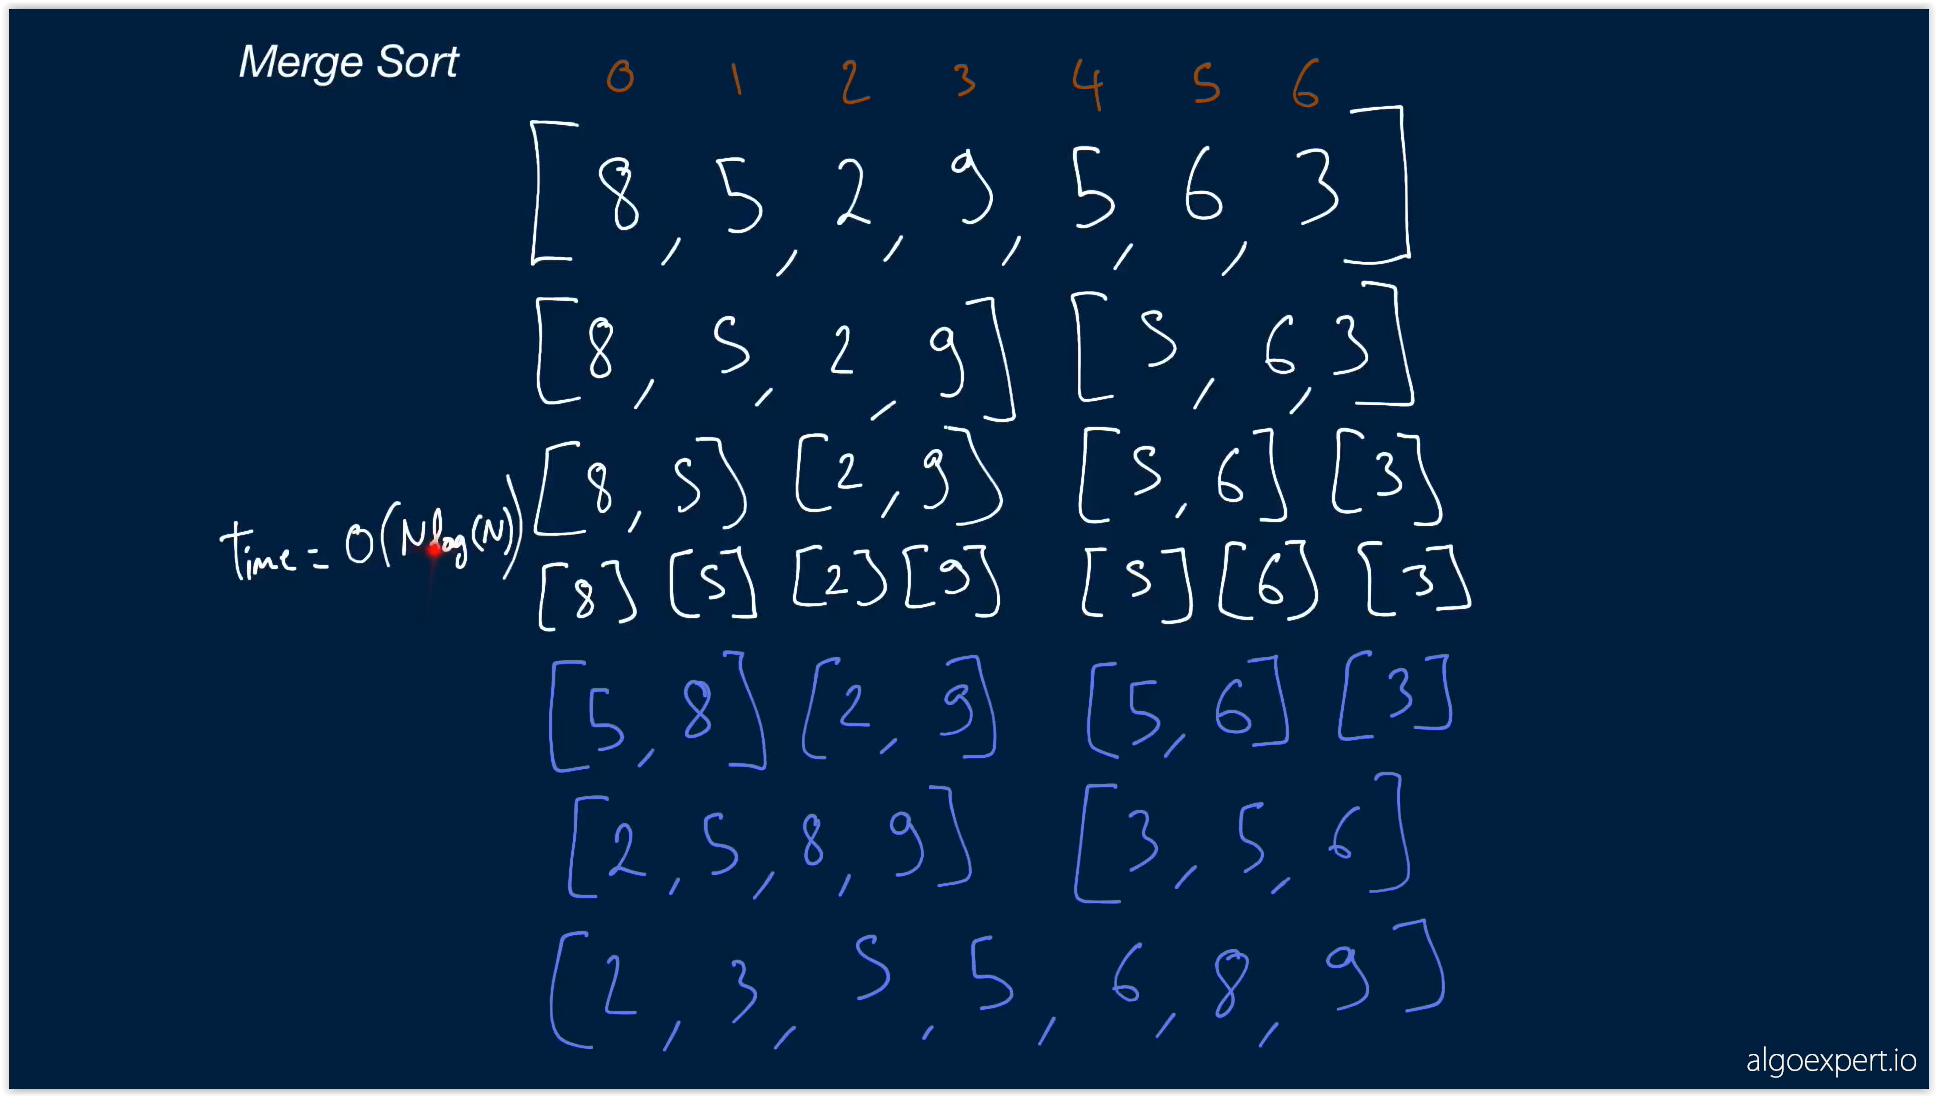 Merge Sort
0 1 2 3 4 5 6
[8, 5, 2, 9, 5, 6, 3]
[8, 5, 2, 9] [5, 6, 3]
[8, 5] [2, 9] [5, 6] [3]
Time = O(Nlog(N))
[8] [5] [2] [9] [5] [6] [3]
[5, 8] [2, 9] [5, 6] [3]
[2, 5, 8, 9] [3, 5, 6]
[2, 3, 5, 5, 6, 8, 9]
algoexpert.io